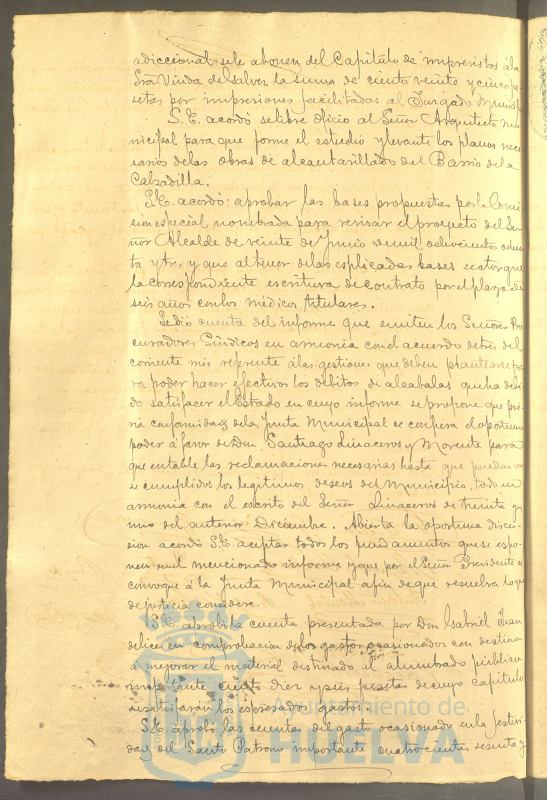 adiccional se le abonen del Capitulo de imprevistos á la
Sra Viuda de Salver la suma de ciento veinte y cinco pe-
setas por impresiones facilitadas al Juzgado Munici
S. E. acordó se libre oficio al Señor Arquitecto mu-
nicipal para que forme el estudio y levante los planos nece
sarios de las obras de alcantarillado del Barrio de la
Calzadilla.
S. E. acordó: aprobar las bases propuestas por la Comi
sion especial nombrada para revisar el proyecto del Se-
ñor Alcalde de veinte de Junio de mil ochocientos ochen
ta y tres, y que al tenor de las esplicadas bases se otorgue
la correspondiente escritura de contrato por el plazo de
seis años con los médicos titulares.
Se dió cuenta del informe que emiten los Señores Pro
curadores Síndicos en armonia con el acuerdo de tres del
corriente mes referente á las gestiones que deben plantearse pa-
ra poder hacer efectivos los débitos de alcabalas que ha debi
do satisfacer el Estado en cuyo informe se propone que
conformidad de la Junta Municipal se confiera el oportuno
poder á favor de Don Santiago Linaceros y Morente para
que entable las reclamaciones necesarias hasta que puedan ver
se cumplidos los legitimos deseos del Municipio, todo en
armonia con el escrito del Señor Linaceros de treinta y
uno del anterior Diciembre. Abierta la oportuna discu-
sion acordó S. E. aceptar todos los fundamentos que se espo-
nen en el mencionado informe y que por el Señor Presidente se
convoque á la Junta Municipal a fin de que resuelva lo que
de justicia considere.
S. E. aprobó la cuenta presentada por Don Gabriel
en comprobacion de los gastos ocasionados con destino
á mejorar el material destinado al alumbrado público
importante ciento diez y seis pesetas de cuyo capitulo
se satisfarán los espresados gastos.
S. E. aprobó las cuentas del gasto ocasionado en la festivi-
dad del Santo Patrono importante cuatrocientas sesenta y
Ayuntamiento de
HUELVA